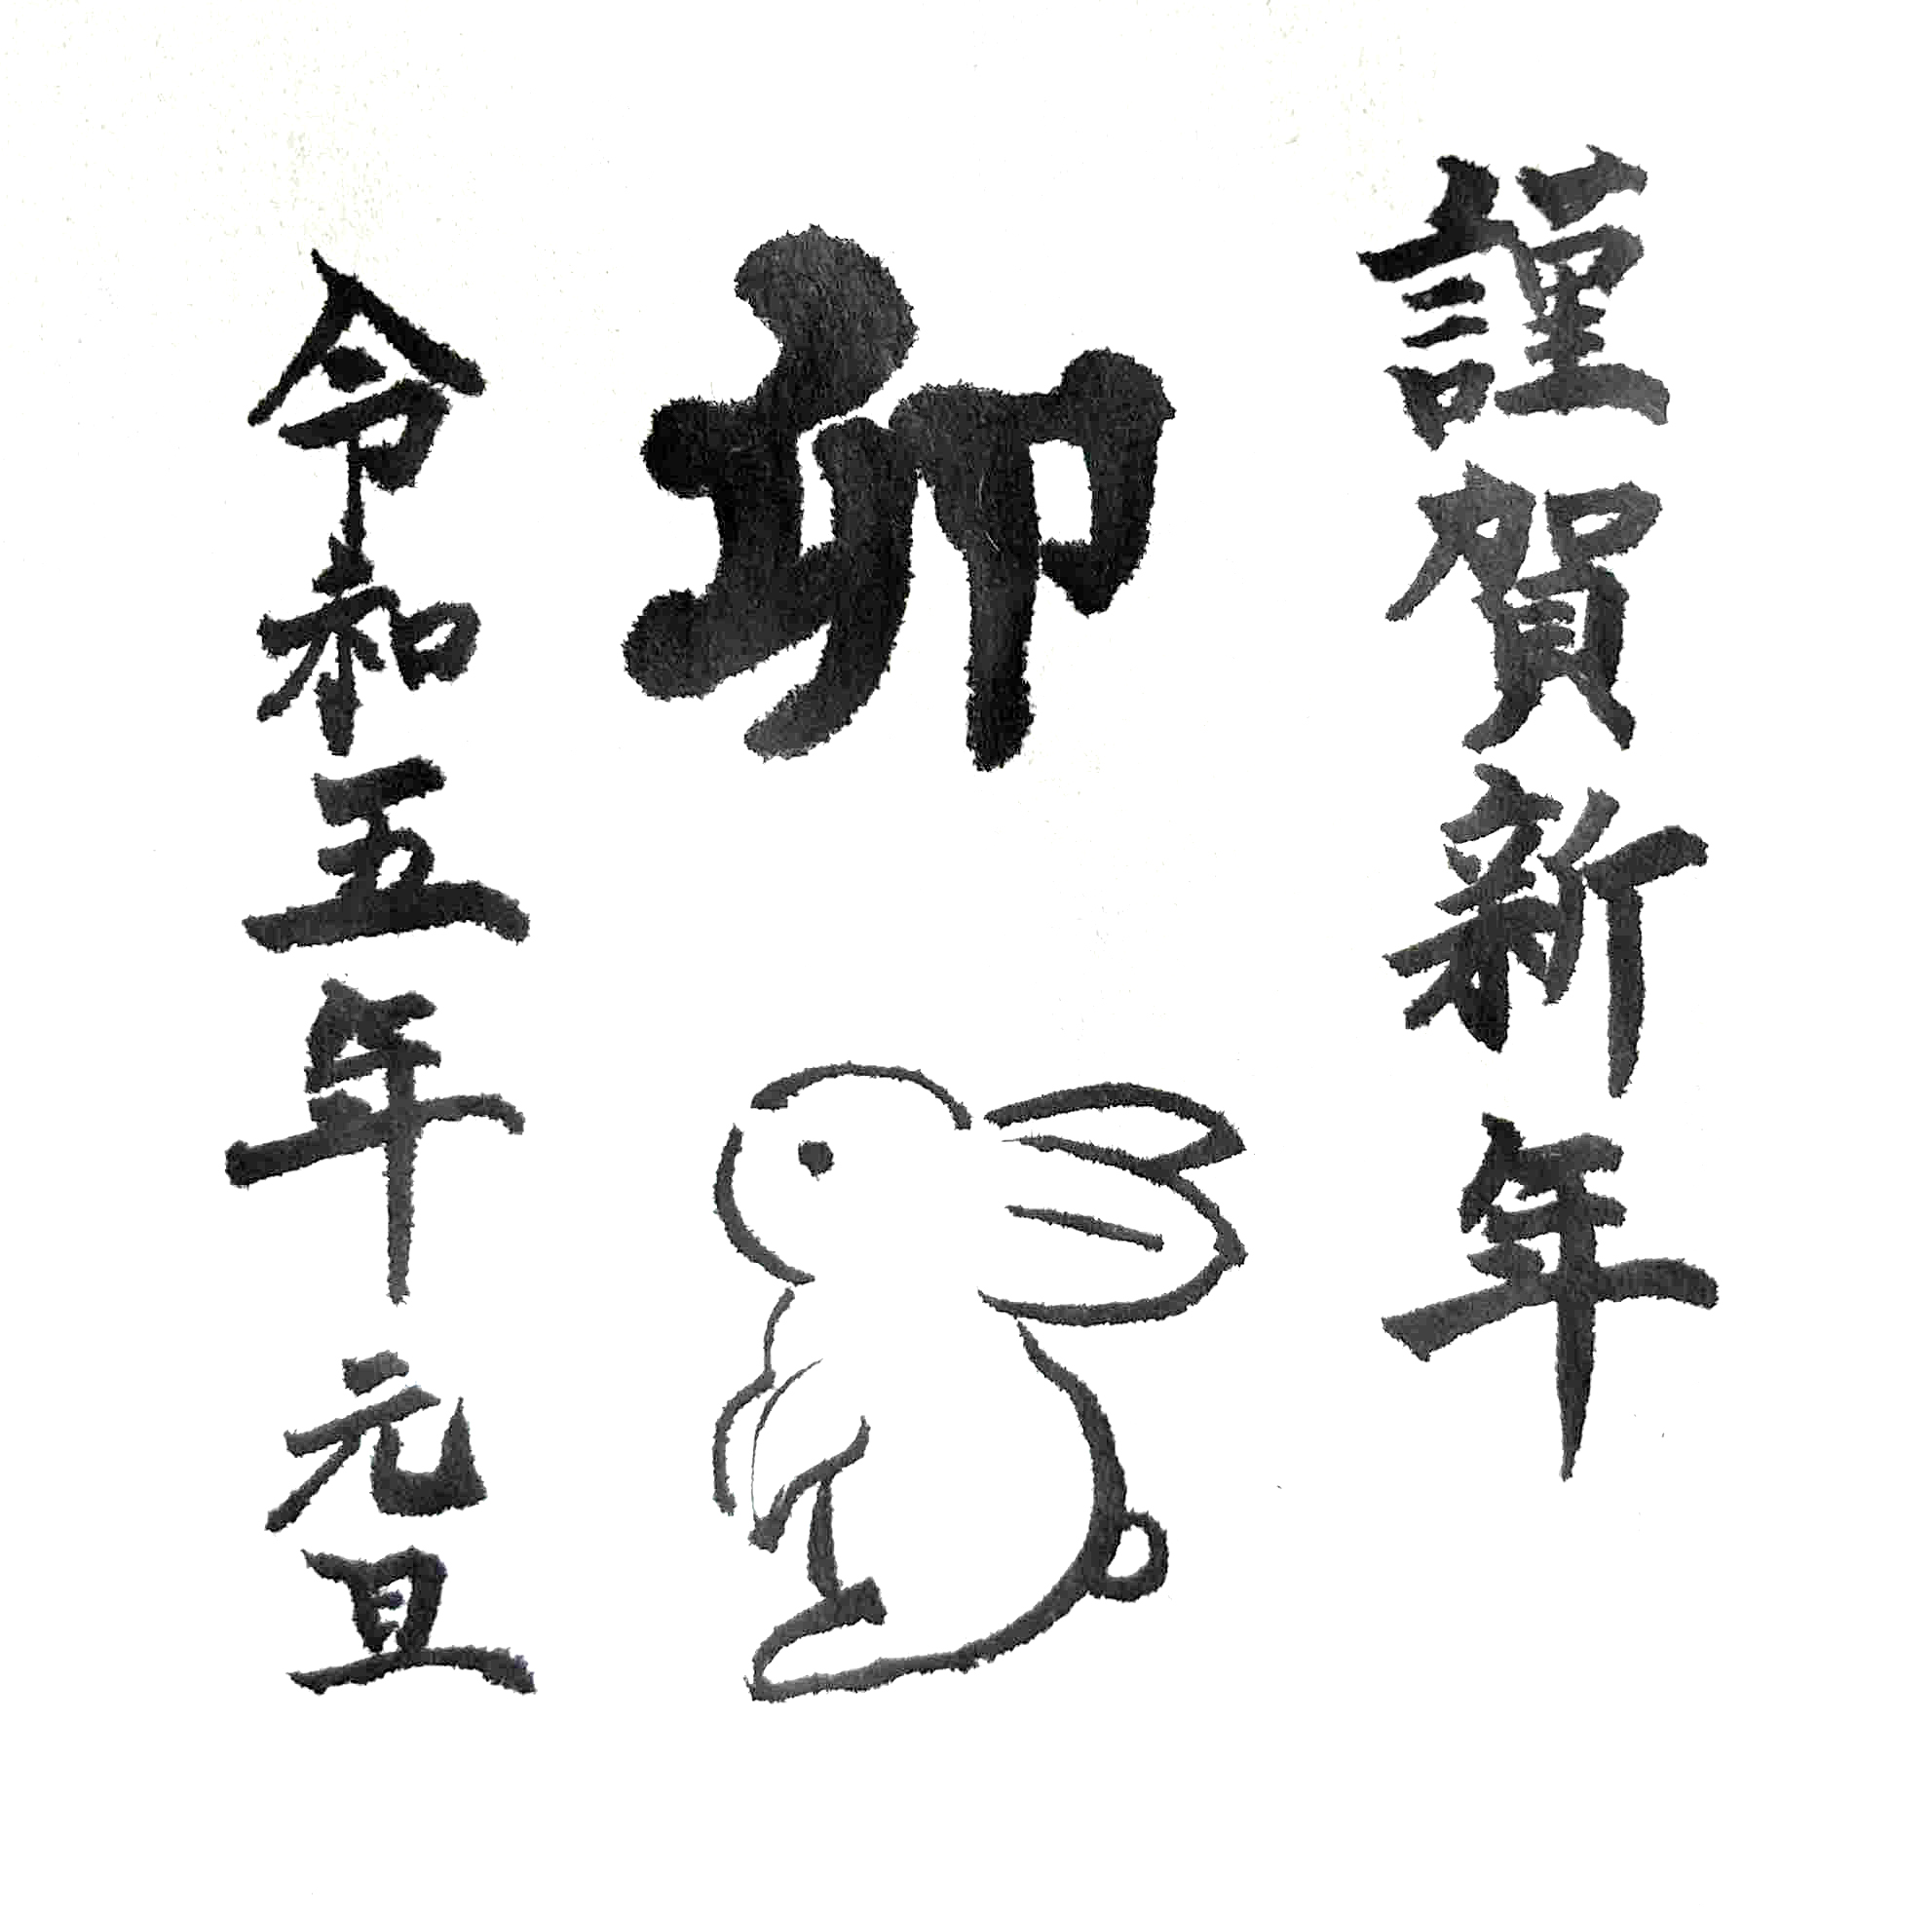 謹賀新年
卯
令和五年 元旦